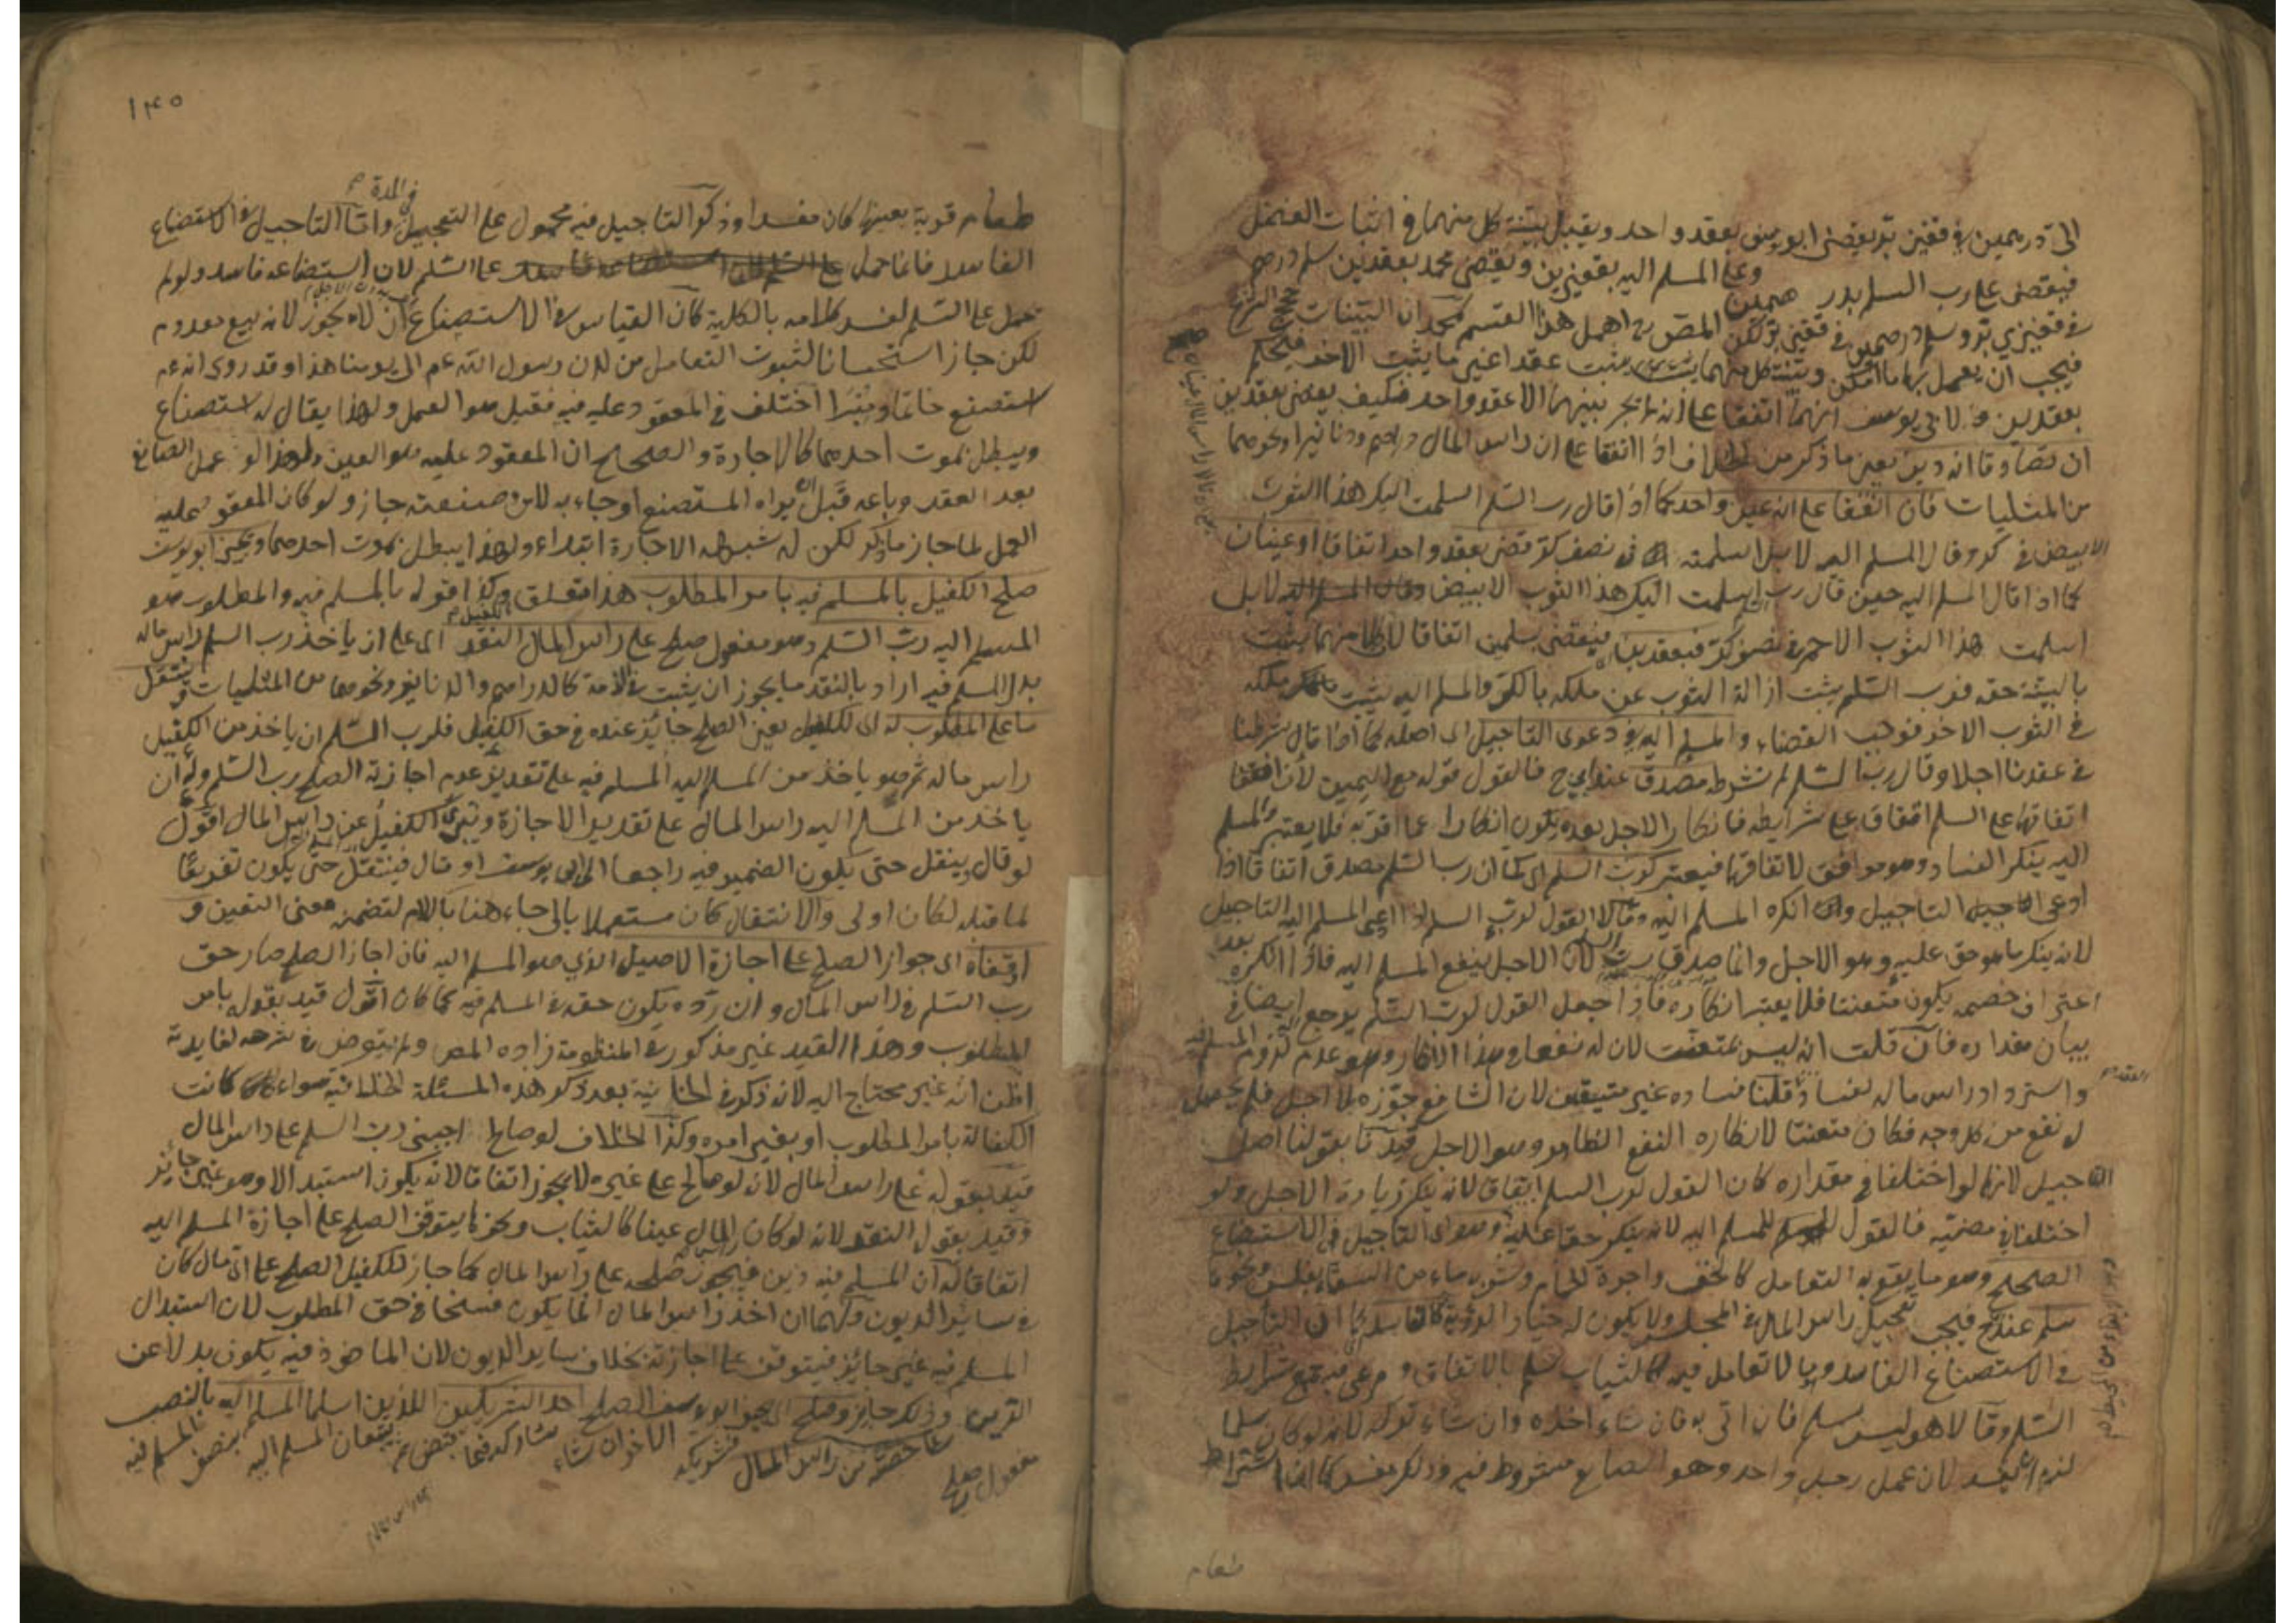 الى درهمين في قفيز بر يقضى ابو يوسف بعقد واحد ويقبل بينة كل منهما في اثبات الفضل
فيقضى على رب السلم بدرهمين وعلى المسلم اليه بقفيزين ويقضى محمد بعقدين سلم درهم
في قفيزي بر وسلم درهمين في قفيز بر لكن المص اهمل هذا القسم لمحمد ان البينات
فيجب ان يعمل بها ما امكن وبينة كل منهما يثبت عقدا غير ما يثبت الاخر فيحكم
بعقدين ولابي يوسف انهما اتفقا على انه لم يجر بينهما الا عقد واحد فكيف يقضى بعقدين
ان تصادقا انه دين يعني ما ذكر من الخلاف اذا اتفقا على ان راس المال دراهم ودنانير او نحوهما
من المثليات فان اتفقا على انه عين واحد كما اذا قال رب السلم اسلمت اليك هذا الثوب
الابيض في كر وقال المسلم اليه لا بل اسلمته في نصف كر قضى بعقد واحد اتفاقا او عينان
كما اذا قال المسلم اليه حين قال رب السلم اسلمت اليك هذا الثوب الابيض لا بل
اسلمت هذا الثوب الاحمر في نصف كر فبعقدين فيقضى بسلمين اتفاقا لان كلا منهما يثبت
بالبينة حقه فرب السلم يثبت ازالة الثوب عن ملكه بالكر والمسلم اليه يثبت ملكه
في الثوب الاخر فوجب القضاء والمسلم اليه في دعوى التاجيل الى اصله كما اذا قال شرطنا
في عقدنا اجلا وقال رب السلم لم نشرطه مصدق عند ابي ح فالقول قوله مع اليمين لان
اتفاقهما على السلم اتفاق على شرايطه فانكار الاجل بعده يكون انكارا عما اقر به فلا يعتبر والمسلم
اليه ينكر الفساد وهو موافق لاتفاقهما فيعتبر كرب السلم اى كما ان رب السلم مصدق اتفاقا اذا
ادعى التاجيل وانكره المسلم اليه وقالا القول لرب السلم اذا ادعى المسلم اليه التاجيل
لانه ينكر ما هو حق عليه وهو الاجل وانما صدق رب السلم لان الاجل ينفع المسلم اليه فاذا انكره بعد
اعتراف خصمه يكون متعنتا فلا يعتبر انكاره فاذا جعل القول لرب السلم يرجع ايضا في
بيان مقداره فان قلت انه ليس بمتعنت لان له نفعا في هذا الانكار وهو عدم لزوم المسلم فيه
واسترداد راس ماله لفساد العقد قلنا فساده غير متيقن لان الشافعي جوزه بلا اجل فلم يحصل
له نفع من كل وجه فكان متعنتا لانكاره النفع الظاهر وهو الاجل قيدنا بقولنا اصل
التاجيل لانهما لو اختلفا في مقداره كان القول لرب السلم اتفاقا لانه ينكر زيادة الاجل ولو
اختلفا في مضيه فالقول للمسلم اليه لانه ينكر حقا عليه وهو اى التاجيل في الاستصناع
الصحيح وهو ما يقع به التعامل كالخف واجرة الحمام وشربه ماء من السقاء بفلس ونحوها
سلم عند ح فيجب تعجيل راس المال في المجلس ولا يكون له خيار الرؤية كالفاسد كما ان التاجيل
في الاستصناع الفاسد وبما لا تعامل فيه كالثياب سلم بالاتفاق ومرعي فيه جميع شرايط
السلم وقالا هو ليس بسلم فان اتى به فان شاء اخذه وان شاء تركه لانه لو كان سلما
لزم ان يفسد لان عمل رجل واحد وهو الصانع مشروط فيه وذلك مفسد كما اذا اشترط
طعام
١٤٥
طعام قرية بعينها كان مفسدا وذكر التاجيل فيه محمول على التعجيل في المدة واما التاجيل في الاستصناع
الفاسد فانما حمل على السلم لان استصناعه فاسد ولو لم
يحمل على السلم لفسد كلامه بالكلية كان القياس في الاستصناع ان لا يجوز لانه بيع معدوم
لكن جاز استحسانا لثبوت التعامل من لدن رسول الله عم الى يومنا هذا وقد روى انه عم
استصنع خاتما ومنبرا اختلف في المعقود عليه فيه فقيل هو العمل ولهذا يقال له استصناع
ويبطل بموت احدهما كالاجارة والصحيح ان المعقود عليه هو العين ولهذا لو عمل الصانع
بعد العقد وباعه قبل ان يراه المستصنع او جاء به لا من صنعته جاز ولو كان المعقود عليه
العمل لما جاز ما ذكر لكن له شبهة الاجارة ابتداء ولهذا يبطل بموت احدهما ويجيز ابو يوسف
صلح الكفيل بالمسلم فيه بامر المطلوب هذا متعلق وكذا قوله بالمسلم فيه والمطلوب هو
المسلم اليه رب السلم وهو مفعول صلح على راس المال النقد اى على ان ياخذ رب السلم راس ماله
بدل المسلم فيه اراد بالنقد ما يجوز ان يثبت في الذمة كالدراهم والدنانير ونحوهما من المثليات وينتقل
ما على المطلوب له اى للكفيل يعني الصلح جايز عنده في حق الكفيل فلرب السلم ان ياخذ من الكفيل
راس ماله ثم هو ياخذ من المسلم اليه المسلم فيه على تقدير عدم اجازته الصلح رب السلم وله ان
ياخذ من المسلم اليه راس المال على تقدير الاجازة ويبرئ الكفيل عن راس المال اقول
لو قال ينقل حتى يكون الضمير فيه راجعا الى ابى يوسف او قال فينتقل حتى يكون تفريعا
لما قبله لكان اولى والانتقال كان مستعملا بالى جاء هنا باللام لتضمنه معنى التعين و
اوقفاه اى جواز الصلح على اجازة الاصيل الذي هو المسلم اليه فان اجاز الصلح صار حق
رب السلم في راس المال وان رده يكون حقه في المسلم فيه كما كان اقول قيد بقوله بامر
المطلوب وهذا القيد غير مذكور في المنظومة زاده المص ولم يتعرض في شرحه لفايدته
اظن انه غير محتاج اليه لانه ذكر في الخانية بعد ذكر هذه المسئلة الخلافية سواء كانت
الكفالة بامر المطلوب او بغير امره وكذا الخلاف لو صالح اجنبي رب السلم على راس المال
قيد بقوله على راس المال لانه لو صالح على غيره لا يجوز اتفاقا لانه يكون استبدالا وهو غير جايز
وقيد بقوله النقد لانه لو كان راس المال عينا كالثياب ونحوها يتوقف الصلح على اجازة المسلم اليه
اتفاقا له ان المسلم فيه دين فيجوز صلحه على راس المال كما جاز للكفيل الصلح على اى مال كان
في ساير الديون ولهما ان اخذ راس المال انما يكون فسخا في حق المطلوب لان استبدال
المسلم فيه غير جايز فيتوقف على اجازته بخلاف ساير الديون لان الماخوذ فيه يكون بدلا عن
الدين وذلك جايز وصلح اى يجيز ابو يوسف الصلح احد الشريكين اللذين اسلما المسلم اليه بالنصب
مفعول صلح على حصته من راس المال فشريكه الاخر ان شاء شاركه فيما قبض ثم يتبعان المسلم اليه بنصف المسلم فيه